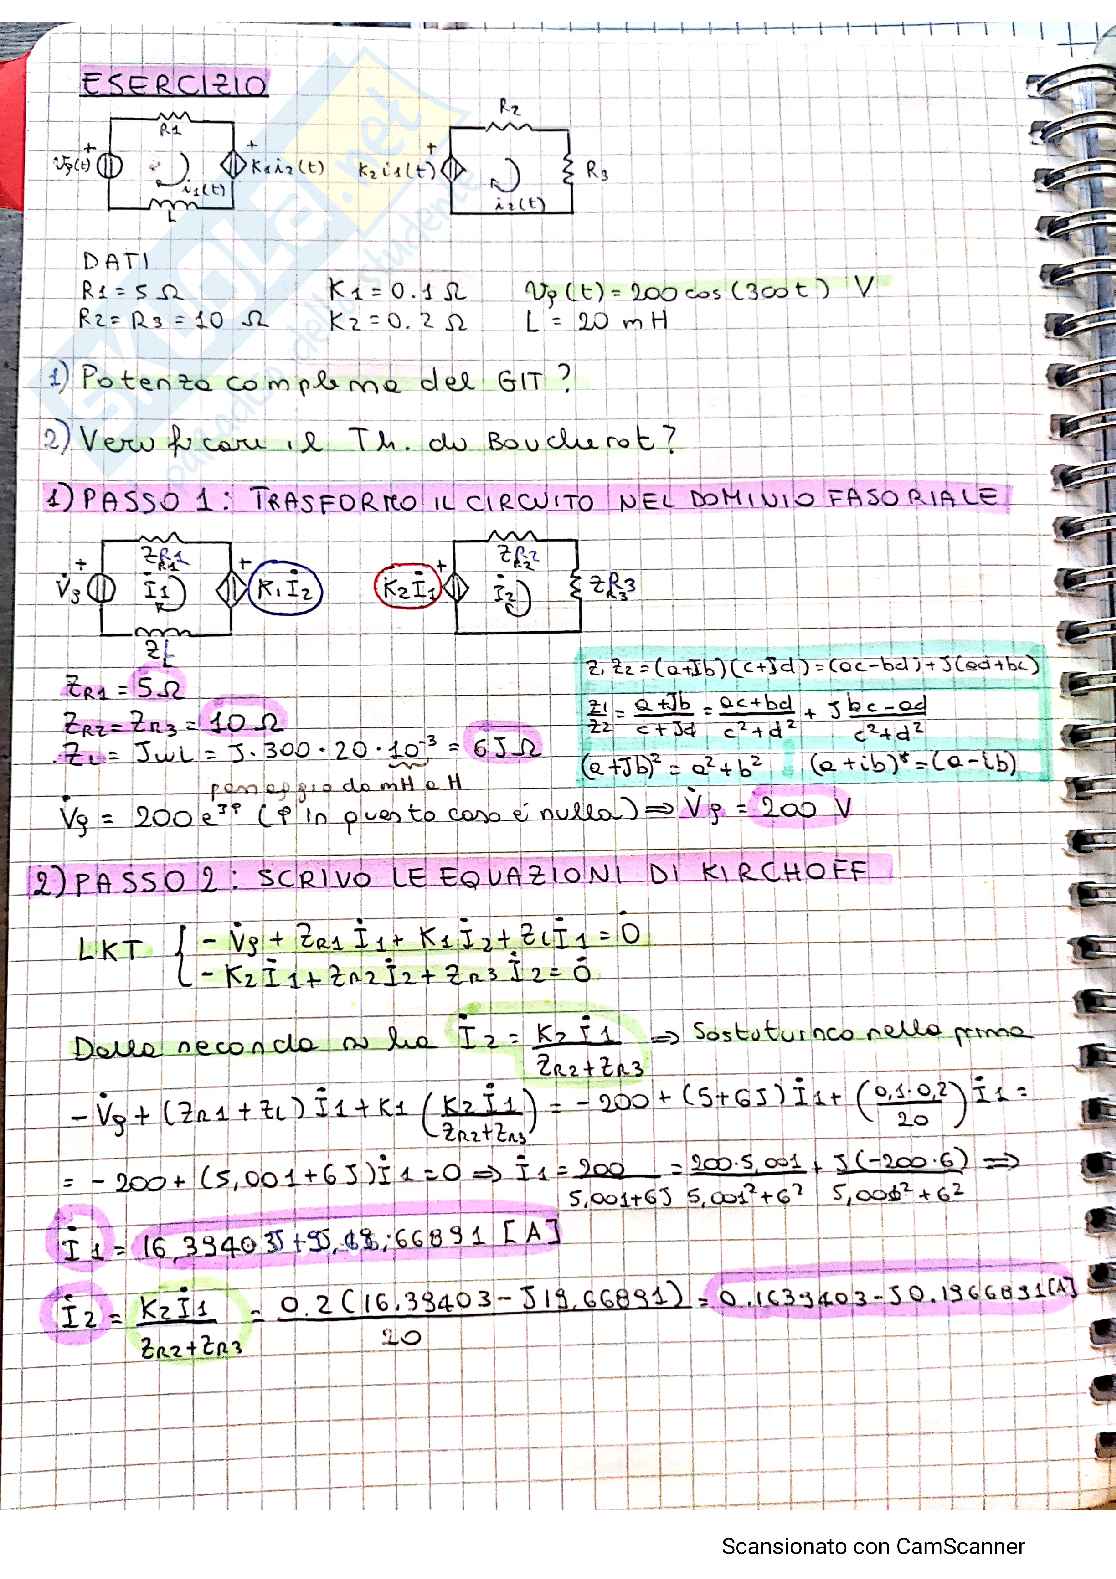 ESERCIZIO
R1
R2
+
+
+
Vg(t)
K1i2(t)
K2i1(t)
R3
i1(t)
i2(t)
L
DATI
R1 = 5 Ω K1 = 0.1 Ω Vg(t) = 200 cos(300t) V
R2 = R3 = 10 Ω K2 = 0.2 Ω L = 20 mH
1) Potenza complessa del GIT?
2) Verificare il Th. di Boucherot?
1) PASSO 1: TRASFORMO IL CIRCUITO NEL DOMINIO FASORIALE
ZR1
ZR2
+
+
+
V̇g
İ1
K1İ2
K2İ1
İ2
ZR3
ZL
Z1 Z2 = (a+Jb)(c+Jd) = (ac-bd)+J(ad+bc)
ZR1 = 5 Ω
Z1/Z2 = (a+Jb)/(c+Jd) = (ac+bd)/(c²+d²) + J (bc-ad)/(c²+d²)
ZR2 = ZR3 = 10 Ω
ZL = JωL = J·300·20·10⁻³ = 6J Ω
(a+Jb)² = a²+b² (a+ib)* = (a-ib)
passaggio da mH a H
V̇g = 200 e^Jφ (φ in questo caso è nulla) ⇒ V̇g = 200 V
2) PASSO 2: SCRIVO LE EQUAZIONI DI KIRCHOFF
LKT { - V̇g + ZR1 İ1 + K1 İ2 + ZL İ1 = 0
- K2 İ1 + ZR2 İ2 + ZR3 İ2 = 0
Dalla seconda si ha İ2 = K2 İ1/(ZR2+ZR3) ⇒ Sostituisco nella prima
- V̇g + (ZR1+ZL) İ1 + K1 (K2 İ1/(ZR2+ZR3)) = - 200 + (5+6J) İ1 + (0,1·0,2/20) İ1 =
= - 200 + (5,001+6J) İ1 = 0 ⇒ İ1 = 200/(5,001+6J) = 200·5,001/(5,001²+6²) + J(-200·6)/(5,001²+6²) ⇒
İ1 = 16,39403 [A]
İ2 = K2 İ1/(ZR2+ZR3) = 0.2(16.39403 - J19,66891)/20 = 0.1639403 - J0.1966891 [A]
Scansionato con CamScanner